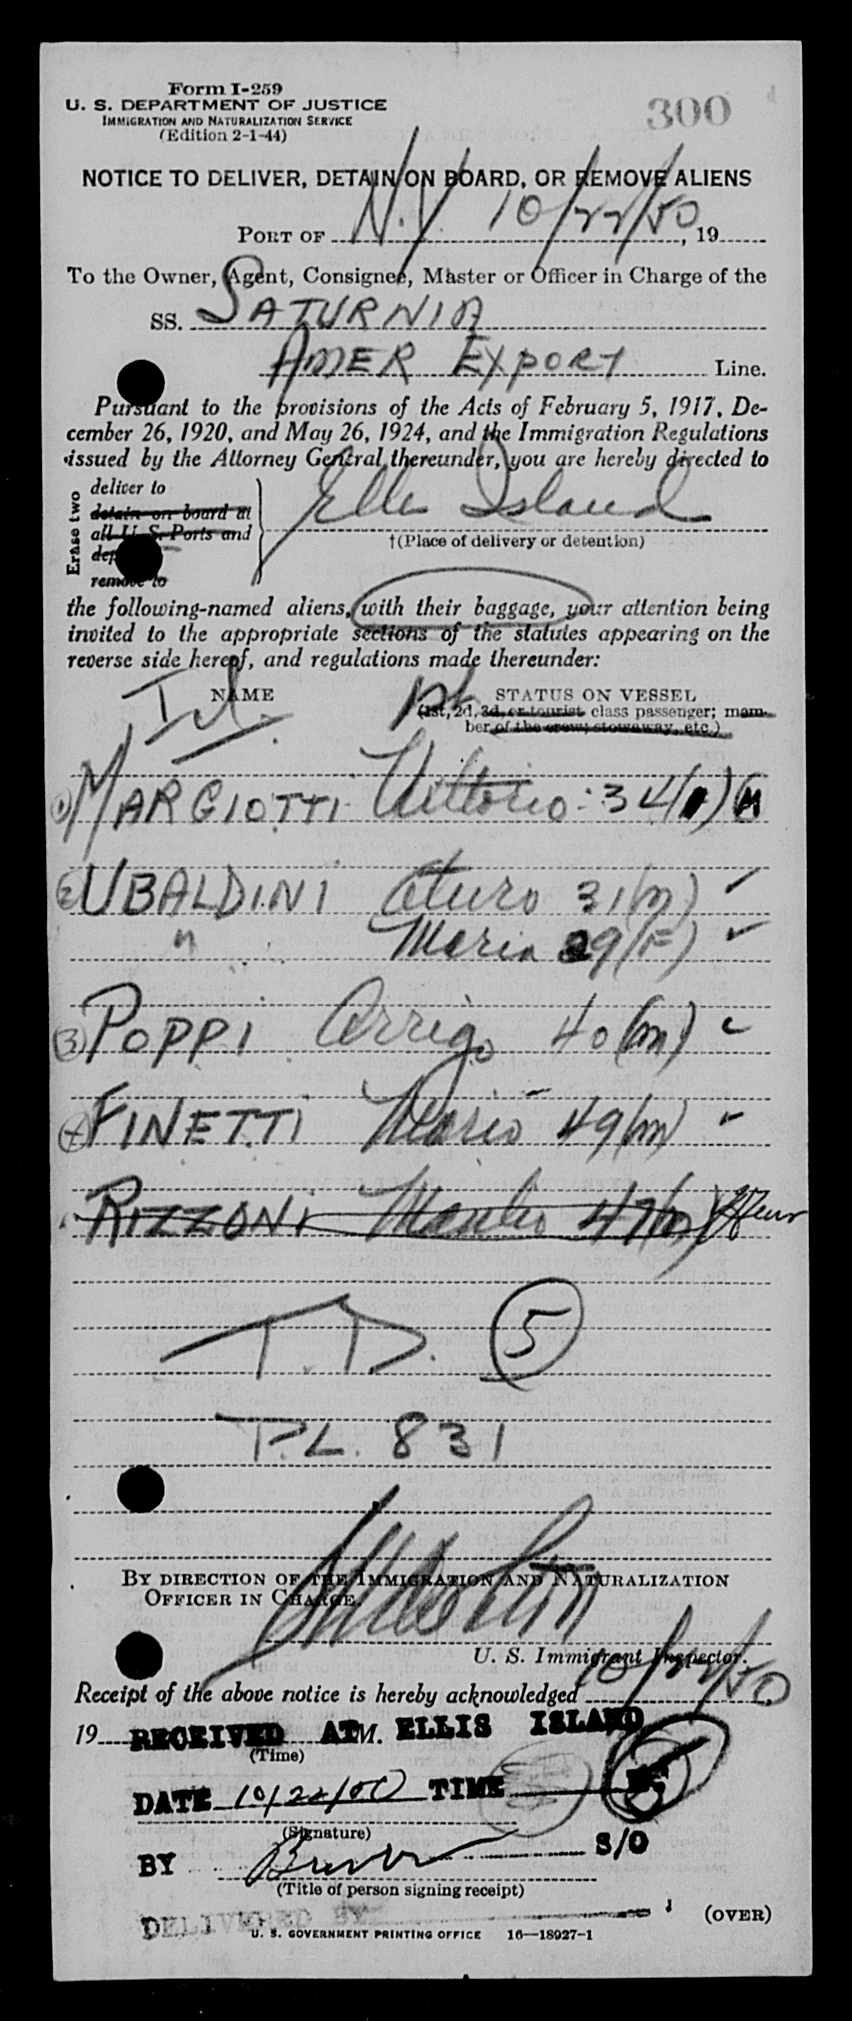 Form I-259
U. S. DEPARTMENT OF JUSTICE
IMMIGRATION AND NATURALIZATION SERVICE
(Edition 2-1-44)
300
NOTICE TO DELIVER, DETAIN ON BOARD, OR REMOVE ALIENS
PORT OF N.Y. 10/22/50, 19
To the Owner, Agent, Consignee, Master or Officer in Charge of the
SS. SATURNIA
AMER EXPORT Line.
Pursuant to the provisions of the Acts of February 5, 1917, De-
cember 26, 1920, and May 26, 1924, and the Immigration Regulations
issued by the Attorney General thereunder, you are hereby directed to
Erase two
deliver to
detain on board at
all U. S. Ports and
remove to
Ellis Island
†(Place of delivery or detention)
the following-named aliens, with their baggage, your attention being
invited to the appropriate sections of the statutes appearing on the
reverse side hereof, and regulations made thereunder:
NAME
1st STATUS ON VESSEL
(1st, 2d, 3d, or tourist class passenger; mem-
ber of the crew; stowaway, etc.)
1 MARGIOTTI Vittorio 34 (M)
2 UBALDINI Arturo 31 (M) ✓
" Maria 29 (F) ✓
3 POPPI Arrigo 40 (M) ✓
4 FINETTI Mario 49 (M) ✓
RIZZONI Manlio 47 (M)
T.D. 5
P.L. 831
BY DIRECTION OF THE IMMIGRATION AND NATURALIZATION
OFFICER IN CHARGE.
U. S. Immigrant Inspector.
Receipt of the above notice is hereby acknowledged 10/22/50
19 RECEIVED AT M. ELLIS ISLAND
(Time)
DATE 10/22/50 TIME
(Signature)
BY S/O
(Title of person signing receipt)
DELIVERED BY
(OVER)
U. S. GOVERNMENT PRINTING OFFICE 16—18927-1